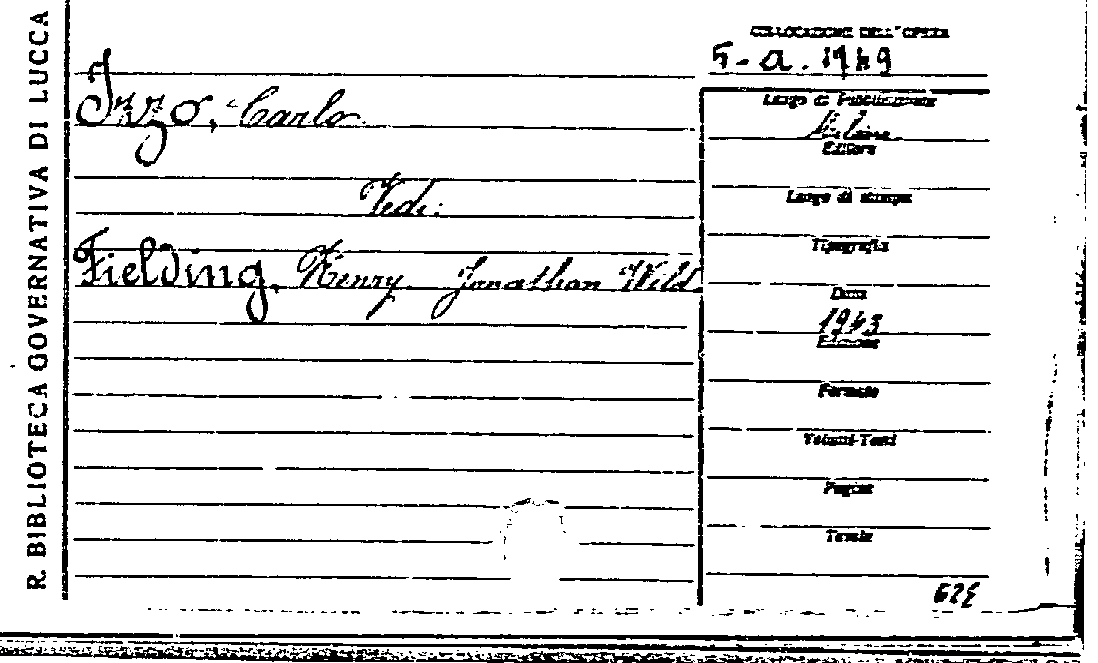 R. BIBLIOTECA GOVERNATIVA DI LUCCA
COLLOCAZIONE DELL'OPERA
5-a. 1949
Izzo, Carlo
Vedi:
Fielding, Henry. Jonathan Wild
Luogo di Pubblicazione
Milano
Editore
Luogo di stampa
Tipografia
Data
1943
Edizione
Formato
Volumi-Tomi
Pagine
Tavole